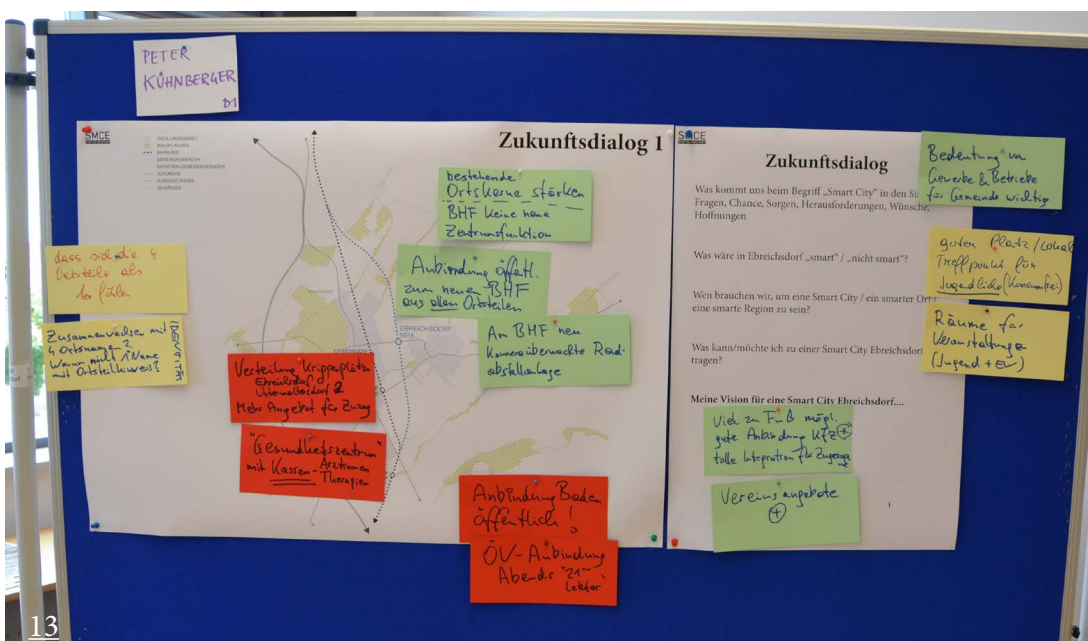 PETER
KÜHNBERGER
D1
SMCE
SIEDLUNGSGEBIET
WALDFLÄCHEN
BAHNLINIE
GEMEINDEGRENZE
KATASTRALGEMEINDEGRENZEN
AUTOBAHN
BUNDESSTRASSE
GEWÄSSER
Zukunftsdialog 1
bestehende
Ortskerne stärken
BHF keine neue
Zentrumsfunktion
Anbindung öffentl.
zum neuen BHF
aus allen Ortsteilen
An BHF neu
Kameraüberwachte Rad-
abstellanlage
EBREICHSDORF
NEU
dass sich die 4
Ortsteile als
fühlen
Zusammenwachsen mit
4 Ortsnamen?
Warum nicht 1 Name
mit Ortsteilhinweis?
IDENTITÄT
Verteilung Krippenplätze
Ebreichsdorf
Unterwaltersdorf 2
Mehr Angebot für Zuzug
"Gesundheitszentrum"
mit Kassen-Ärztinnen
-Therapien
Anbindung Baden
öffentlich!
ÖV-Anbindung
Abends "21 Uhr
letzter"
SMCE
Zukunftsdialog
Was kommt uns beim Begriff „Smart City" in den
Fragen, Chance, Sorgen, Herausforderungen, Wünsche,
Hoffnungen
Was wäre in Ebreichsdorf „smart" / „nicht smart"?
Wen brauchen wir, um eine Smart City / ein smarter Ort /
eine smarte Region zu sein?
Was kann/möchte ich zu einer Smart City Ebreichsdorf
tragen?
Meine Vision für eine Smart City Ebreichsdorf....
Viel zu Fuß mögl.
gute Anbindung KFZ +
tolle Integration für
Vereinsangebote
+
Bedeutung von
Gewerbe & Betriebe
für Gemeinde wichtig
guten Platz/Lokal
Treffpunkt für
Jugendliche (Konsumfrei)
Räume für
Veranstaltungen
(Jugend + EW)
13